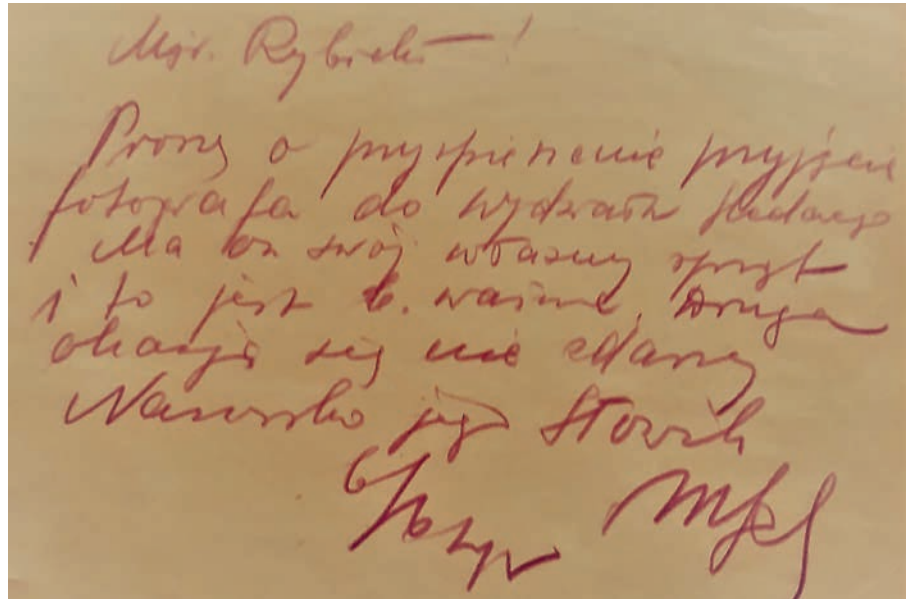 Mjr. Rybicki — !
Proszę o przyspieszenie przyjęcie
fotografa do wydziału śledczego
Ma on swój własny sprzęt
i to jest b. ważne. Druga
okazja się nie zdarzy
Nazwisko jego Słowik